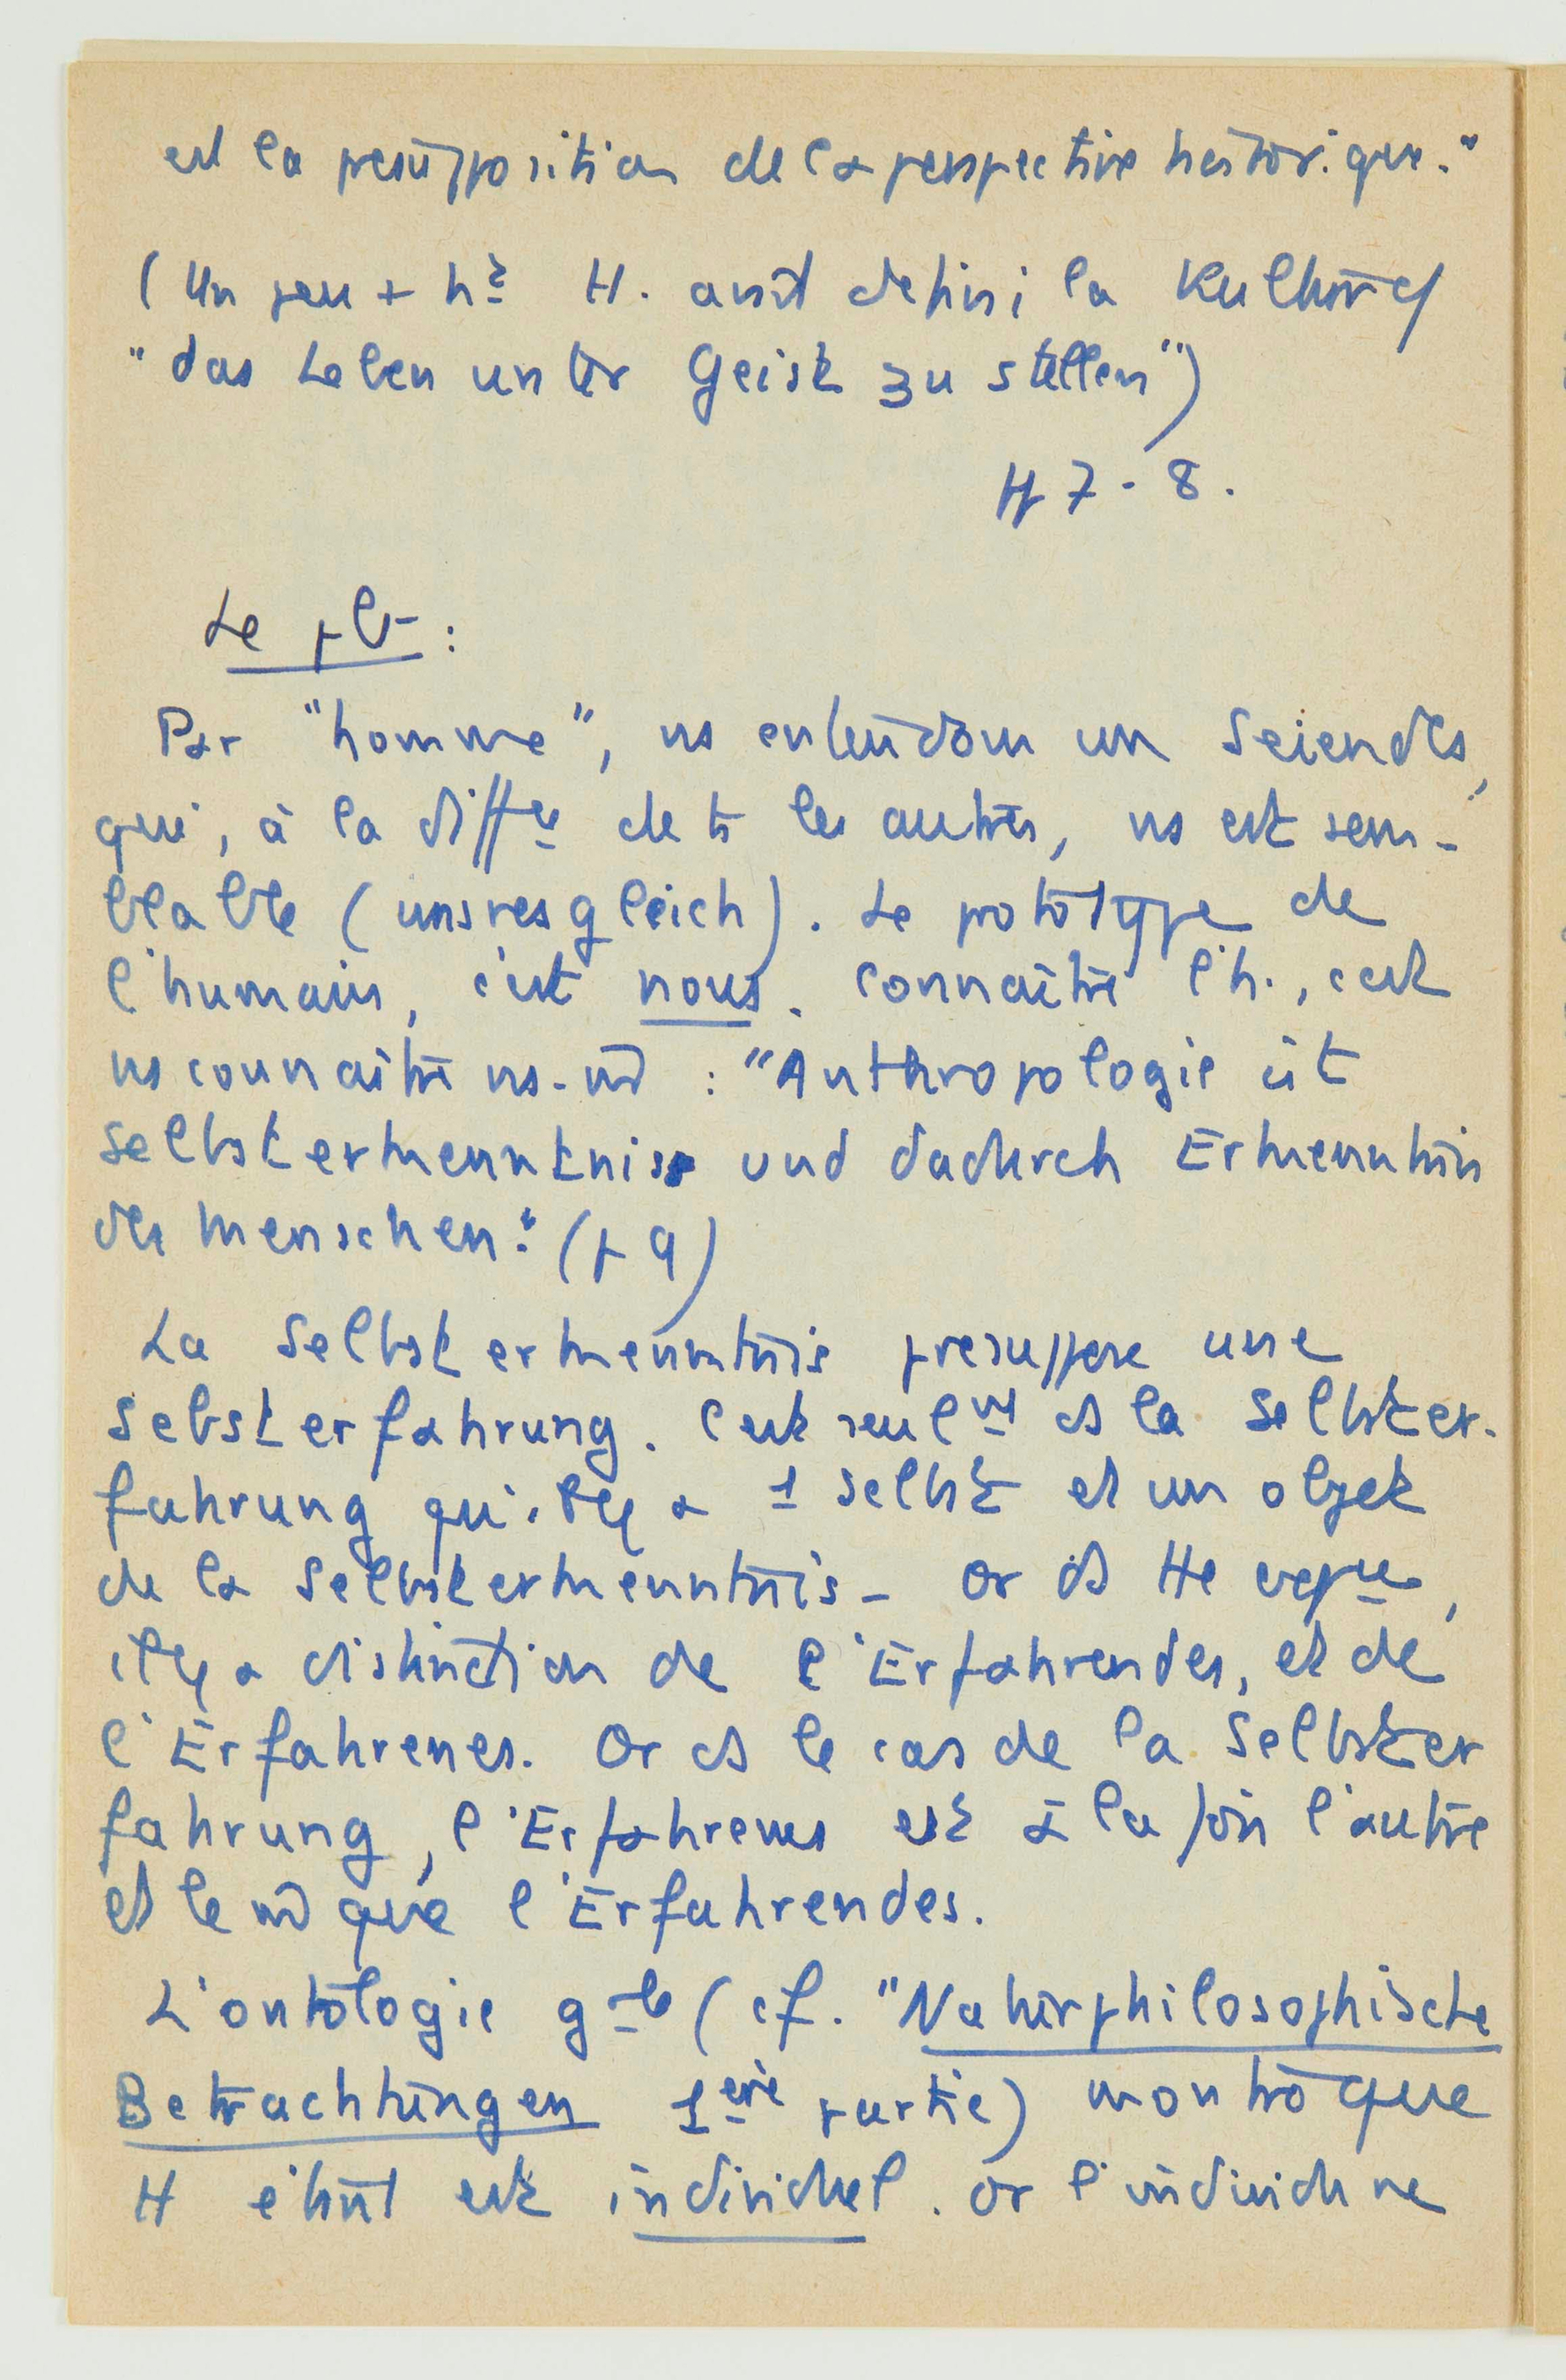 est la presupposition de la perspective historique."
(Un peu + ht H. avait defini la Kultur cf
"das Leben unter Geist zu stellen")
H 7-8.
Le pb :
Par "homme", ns entendons un Seiendes,
qui, à la diffce de ts les autres, ns est sem-
blable (unsresgleich). Le prototype de
l'humain, c'est nous. Connaître l'h., c'est
ns connaître ns-m : "Anthropologie ist
Selbsterkenntnis und dadurch Erkenntnis
des Menschen." (p 9)
La Selbsterkenntnis presuppose une
Selbsterfahrung. C'est seult ds la Selbster-
fahrung qu'il y a 1 Selbst et un objet
de la Selbsterkenntnis - Or ds tte expce,
il y a distinction de l'Erfahrendes, et de
l'Erfahrenes. Or ds le cas de la Selbster
fahrung, l'Erfahrenes est à la fois l'autre
et le m que l'Erfahrendes.
L'ontologie gle (cf. "Naturphilosophische
Betrachtungen 1ère partie) montre que
tt étant est individuel. Or l'individu ne